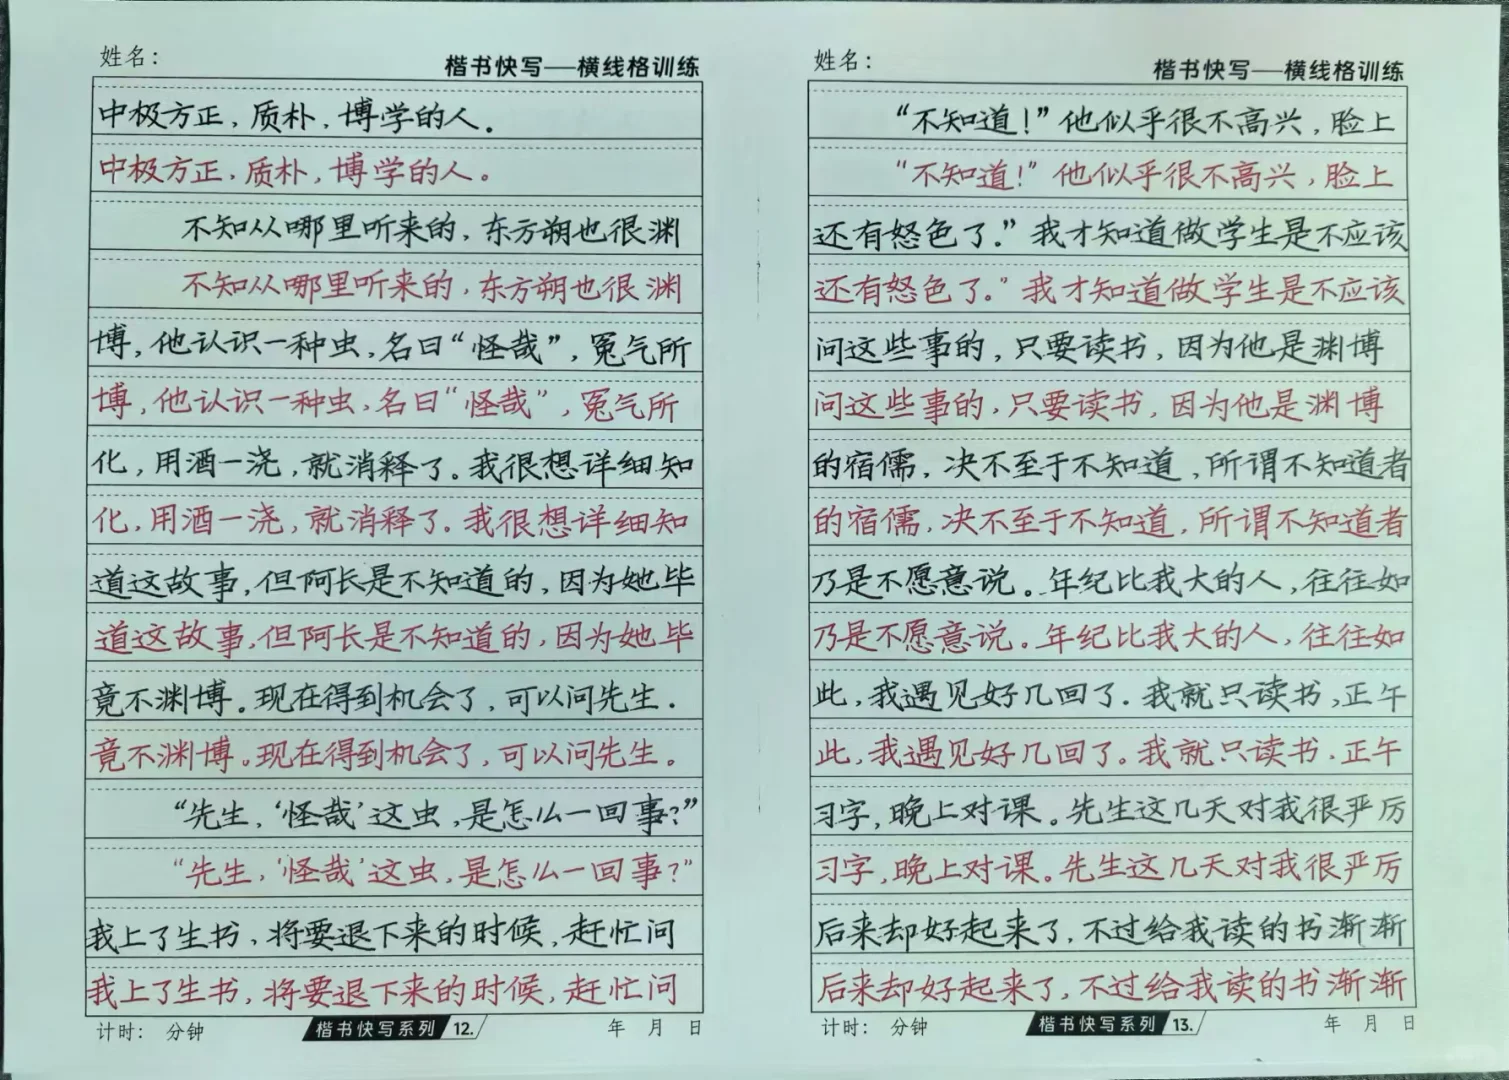 姓名：
楷书快写——横线格训练
中极方正，质朴，博学的人．
中极方正，质朴，博学的人。
不知从哪里听来的，东方朔也很渊
不知从哪里听来的，东方朔也很渊
博，他认识一种虫，名曰“怪哉”，冤气所
博，他认识一种虫，名曰“怪哉”，冤气所
化，用酒一浇，就消释了。我很想详细知
化，用酒一浇，就消释了。我很想详细知
道这故事，但阿长是不知道的，因为她毕
道这故事，但阿长是不知道的，因为她毕
竟不渊博。现在得到机会了，可以问先生．
竟不渊博。现在得到机会了，可以问先生。
“先生，‘怪哉’这虫，是怎么一回事？”
“先生，‘怪哉’这虫，是怎么一回事？”
我上了生书，将要退下来的时候，赶忙问
我上了生书，将要退下来的时候，赶忙问
计时： 分钟
楷书快写系列 12.
年 月 日
姓名：
楷书快写——横线格训练
“不知道！”他似乎很不高兴，脸上
“不知道！”他似乎很不高兴，脸上
还有怒色了．”我才知道做学生是不应该
还有怒色了。”我才知道做学生是不应该
问这些事的，只要读书，因为他是渊博
问这些事的，只要读书，因为他是渊博
的宿儒，决不至于不知道，所谓不知道者
的宿儒，决不至于不知道，所谓不知道者
乃是不愿意说。年纪比我大的人，往往如
乃是不愿意说。年纪比我大的人，往往如
此，我遇见好几回了．我就只读书，正午
此，我遇见好几回了。我就只读书，正午
习字，晚上对课。先生这几天对我很严厉
习字，晚上对课。先生这几天对我很严厉
后来却好起来了，不过给我读的书渐渐
后来却好起来了，不过给我读的书渐渐
计时： 分钟
楷书快写系列 13.
年 月 日